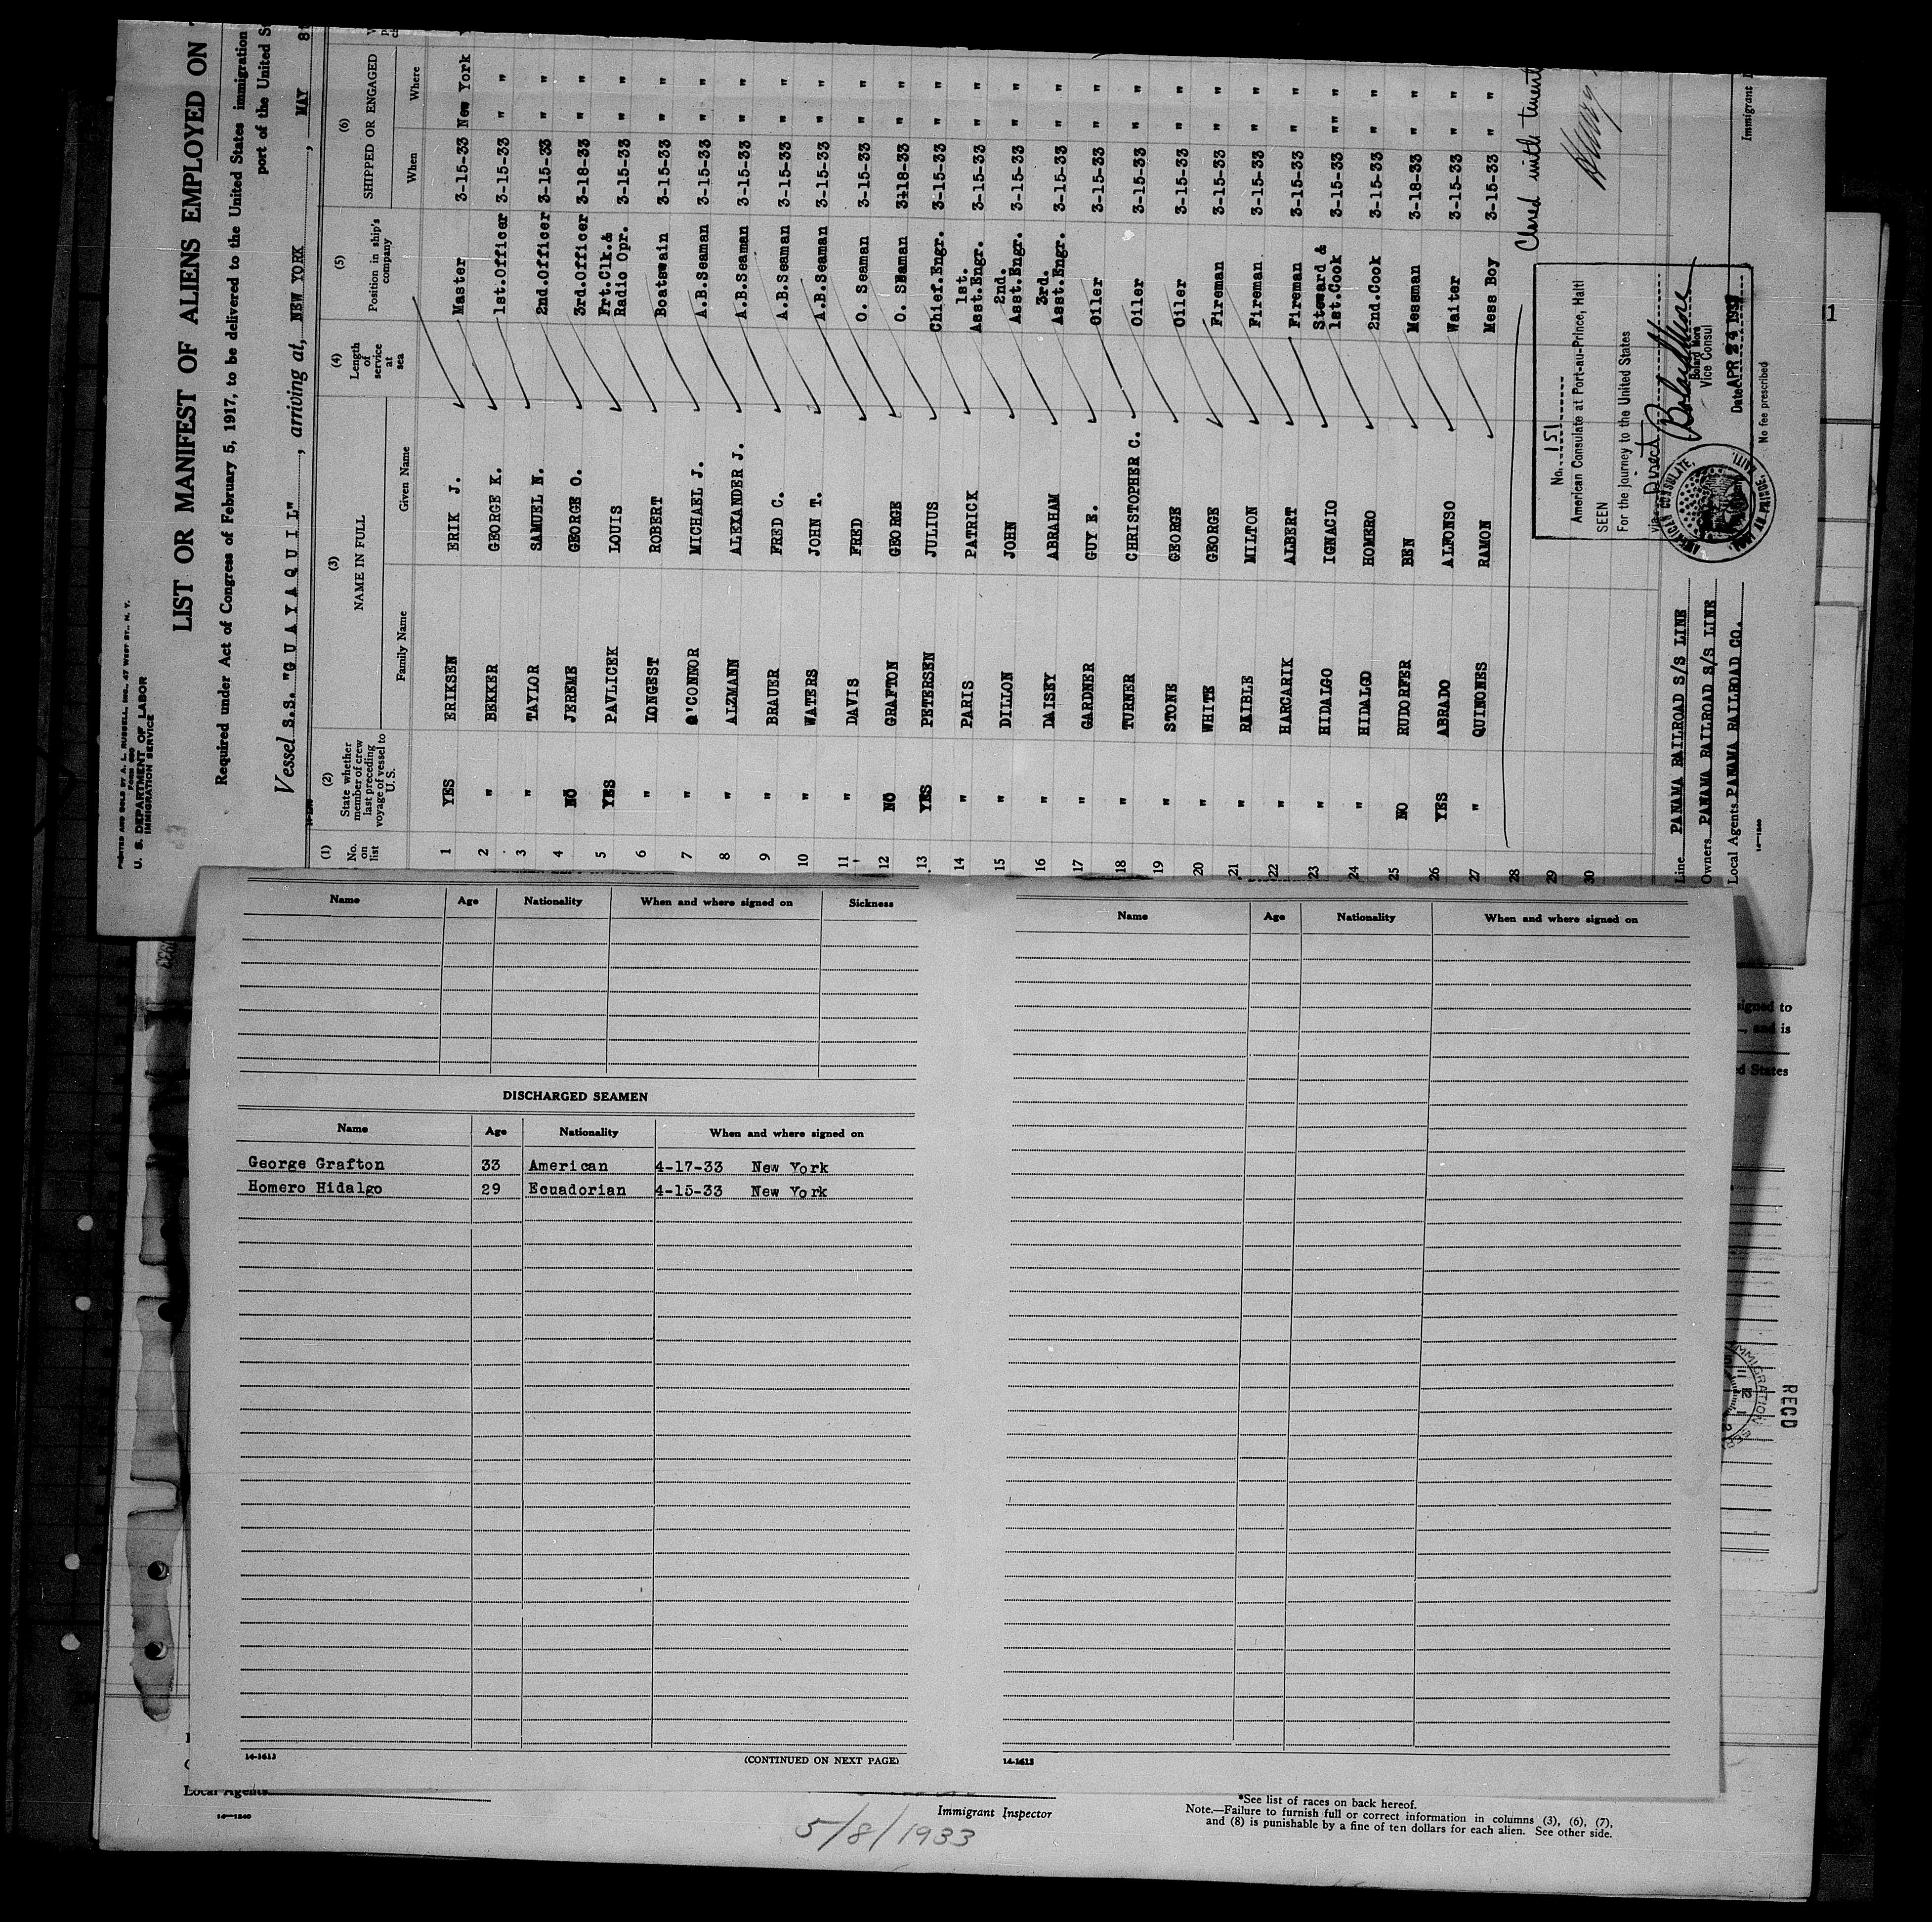 PRINTED AND SOLD BY A. L. RUSSELL, INC., 47 WEST ST., N. Y.
Form 680
U. S. DEPARTMENT OF LABOR
IMMIGRATION SERVICE
LIST OR MANIFEST OF ALIENS EMPLOYED ON
Required under Act of Congress of February 5, 1917, to be delivered to the United States immigration
port of the United
Vessel S.S. "G U A Y A Q U I L", arriving at, NEW YORK, MAY 8
(1) (2) (3) (4) (5) (6)
No. on list
State whether member of crew last preceding voyage of vessel to U. S.
NAME IN FULL
Family Name Given Name
Length of service at sea
Position in ship's company
SHIPPED OR ENGAGED
When Where
1 YES ERIKSEN ERIK J. Master 3-15-33 New York
2 " BEKKER GEORGE K. 1st.Officer 3-15-33 " "
3 " TAYLOR SAMUEL N. 2nd.Officer 3-15-33 " "
4 NO JEREME GEORGE O. 3rd.Officer 3-18-33 " "
5 YES PAVLICEK LOUIS Frt.Clk.& Radio Opr. 3-15-33 " "
6 " LONGEST ROBERT Boatswain 3-15-33 " "
7 " O'CONNOR MICHAEL J. A.B.Seaman 3-15-33 " "
8 " ALZMANN ALEXANDER J. A.B.Seaman 3-15-33 " "
9 " BRAUER FRED C. A.B.Seaman 3-15-33 " "
10 " WATERS JOHN T. A.B.Seaman 3-15-33 " "
11 " DAVIS FRED O. Seaman 3-15-33 " "
12 NO GRAFTON GEORGE O. SEaman 3418-33 " "
13 YES PETERSEN JULIUS Chief.Engr. 3-15-33 " "
14 " PARIS PATRICK 1st. Asst.Engr. 3-15-33 " "
15 " DILLON JOHN 2nd. Asst.Engr. 3-15-33 " "
16 " DAISEY ABRAHAM 3rd. Asst.Engr. 3-15-33 " "
17 " GARDNER GUY E. Oiler 3-15-33 " "
18 " TURNER CHRISTOPHER C. Oiler 3-15-33 " "
19 " STONE GEORGE Oiler 3-15-33 " "
20 " WHITE GEORGE Fireman 3-15-33 " "
21 " RAIBLE MILTON Fireman 3-15-33 " "
22 " HARGARIK ALBERT Fireman 3-15-33 " "
23 " HIDALGO IGNACIO Steward & 1st.Cook 3-15-33 " "
24 " HIDALGO HOMERO 2nd.Cook 3-15-33 " "
25 NO RUDORFER BEN Messman 3-18-33 " "
26 YES ABRADO ALFONSO Waiter 3-15-33 " "
27 " QUINONES RAMON Mess Boy 3-15-33 " "
28
29
30
No. 151
American Consulate at Port-au-Prince, Haiti
SEEN
For the journey to the United States
via Direct
Vice Consul
Date APR 24 193
No fee prescribed
AMERICAN CONSULATE,
Line PANAMA RAILROAD S/S LINE
Owners PANAMA RAILROAD S/S LINE
Local Agents PANAMA RAILROAD CO.
14-1240
Immigrant
Name Age Nationality When and where signed on Sickness
DISCHARGED SEAMEN
Name Age Nationality When and where signed on
George Grafton 33 American 4-17-33 New York
Homero Hidalgo 29 Ecuadorian 4-15-33 New York
14-1613
(CONTINUED ON NEXT PAGE)
Name Age Nationality When and where signed on
14-1613
signed to
and is
States
IMMIGRATION
RECD
Local Agents
14-1240
Immigrant Inspector
5/8/1933
*See list of races on back hereof.
Note.—Failure to furnish full or correct information in columns (3), (6), (7),
and (8) is punishable by a fine of ten dollars for each alien. See other side.